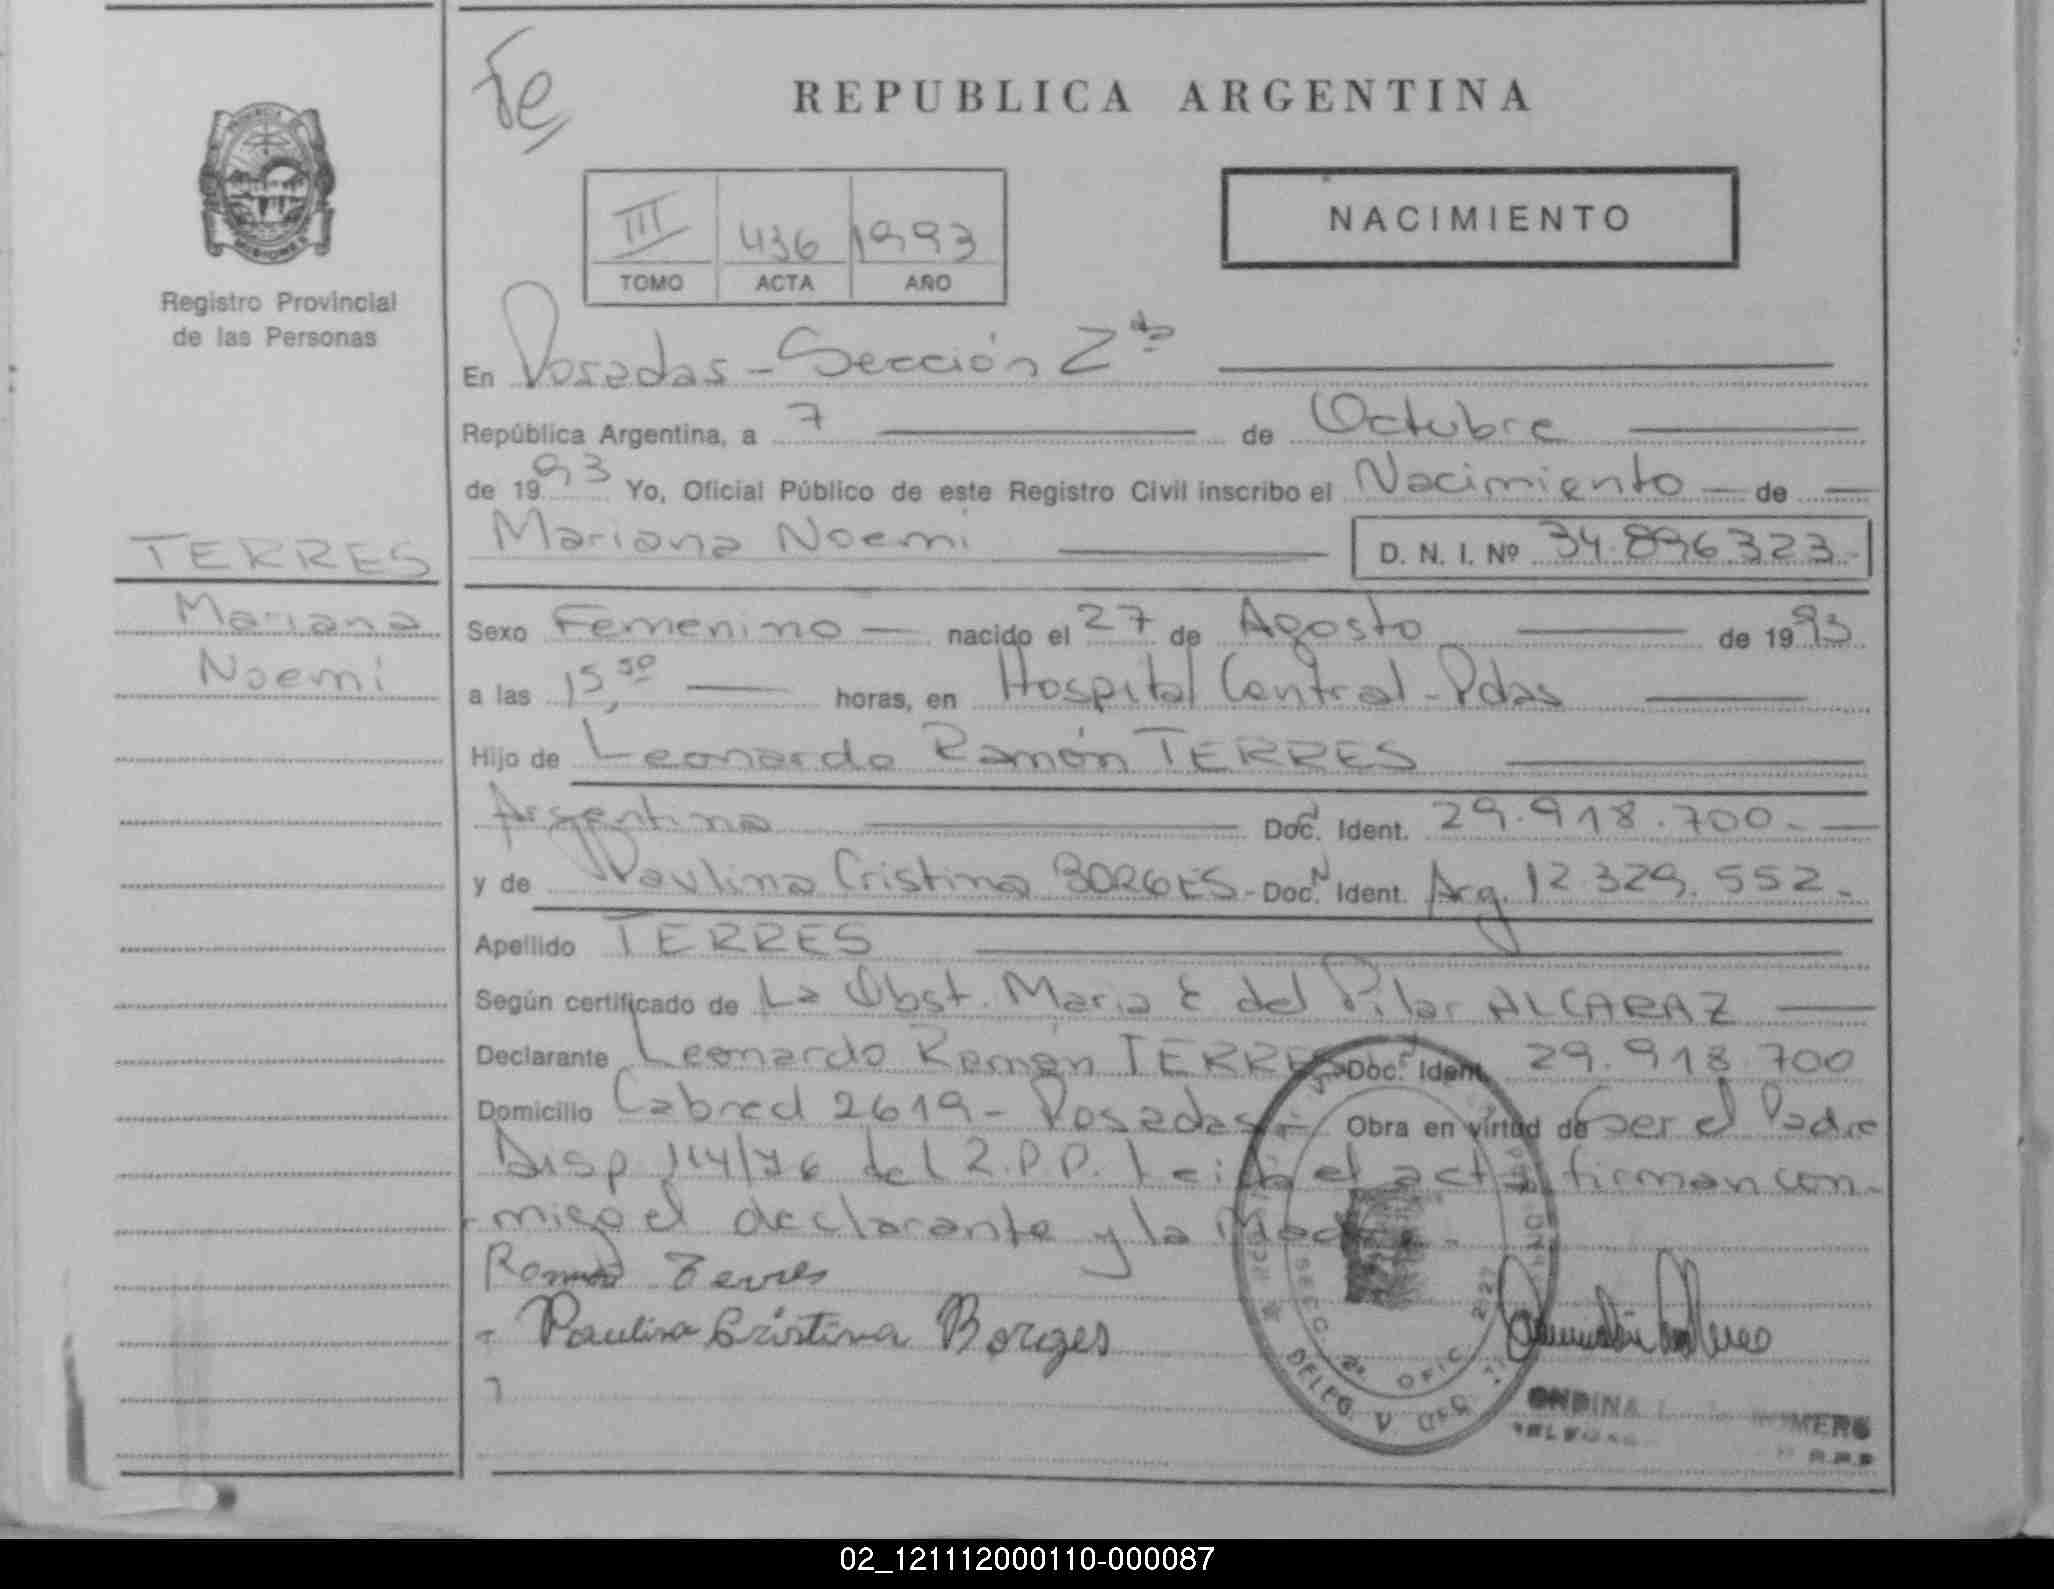 Fe
REPUBLICA ARGENTINA
III 436 1993
TOMO ACTA AÑO
NACIMIENTO
Registro Provincial
de las Personas
En Posadas - Sección 2da
República Argentina, a 7 de Octubre
de 1993 Yo, Oficial Público de este Registro Civil inscribo el Nacimiento de
Mariana Noemi D. N. I. Nº 34.896.323.-
TERRES
Mariana
Noemi
Sexo Femenino nacido el 27 de Agosto de 1993
a las 15,50 horas, en Hospital Central - Pdas
Hijo de Leonardo Ramón TERRES
Argentina Doc. Ident. 29.918.700.-
y de Paulina Cristina BORGES - Doc. Ident. Arg. 12.329.552.-
Apellido TERRES
Según certificado de La Obst. Maria E del Pilar ALCARAZ
Declarante Leonardo Ramón TERRES Doc. Ident. 29.918.700
Domicilio Cabred 2619 - Posadas - Obra en virtud de Ser el Padre
Disp 114/76 del R.P.P. Leida el acta firman con-
migo el declarante y la Madre.-
Ramon Terres
Paulina Cristina Borges
SECC. 2a. OFIC. 227
DELEG
ONDINA ROMERO
R.P.P
02_121112000110-000087